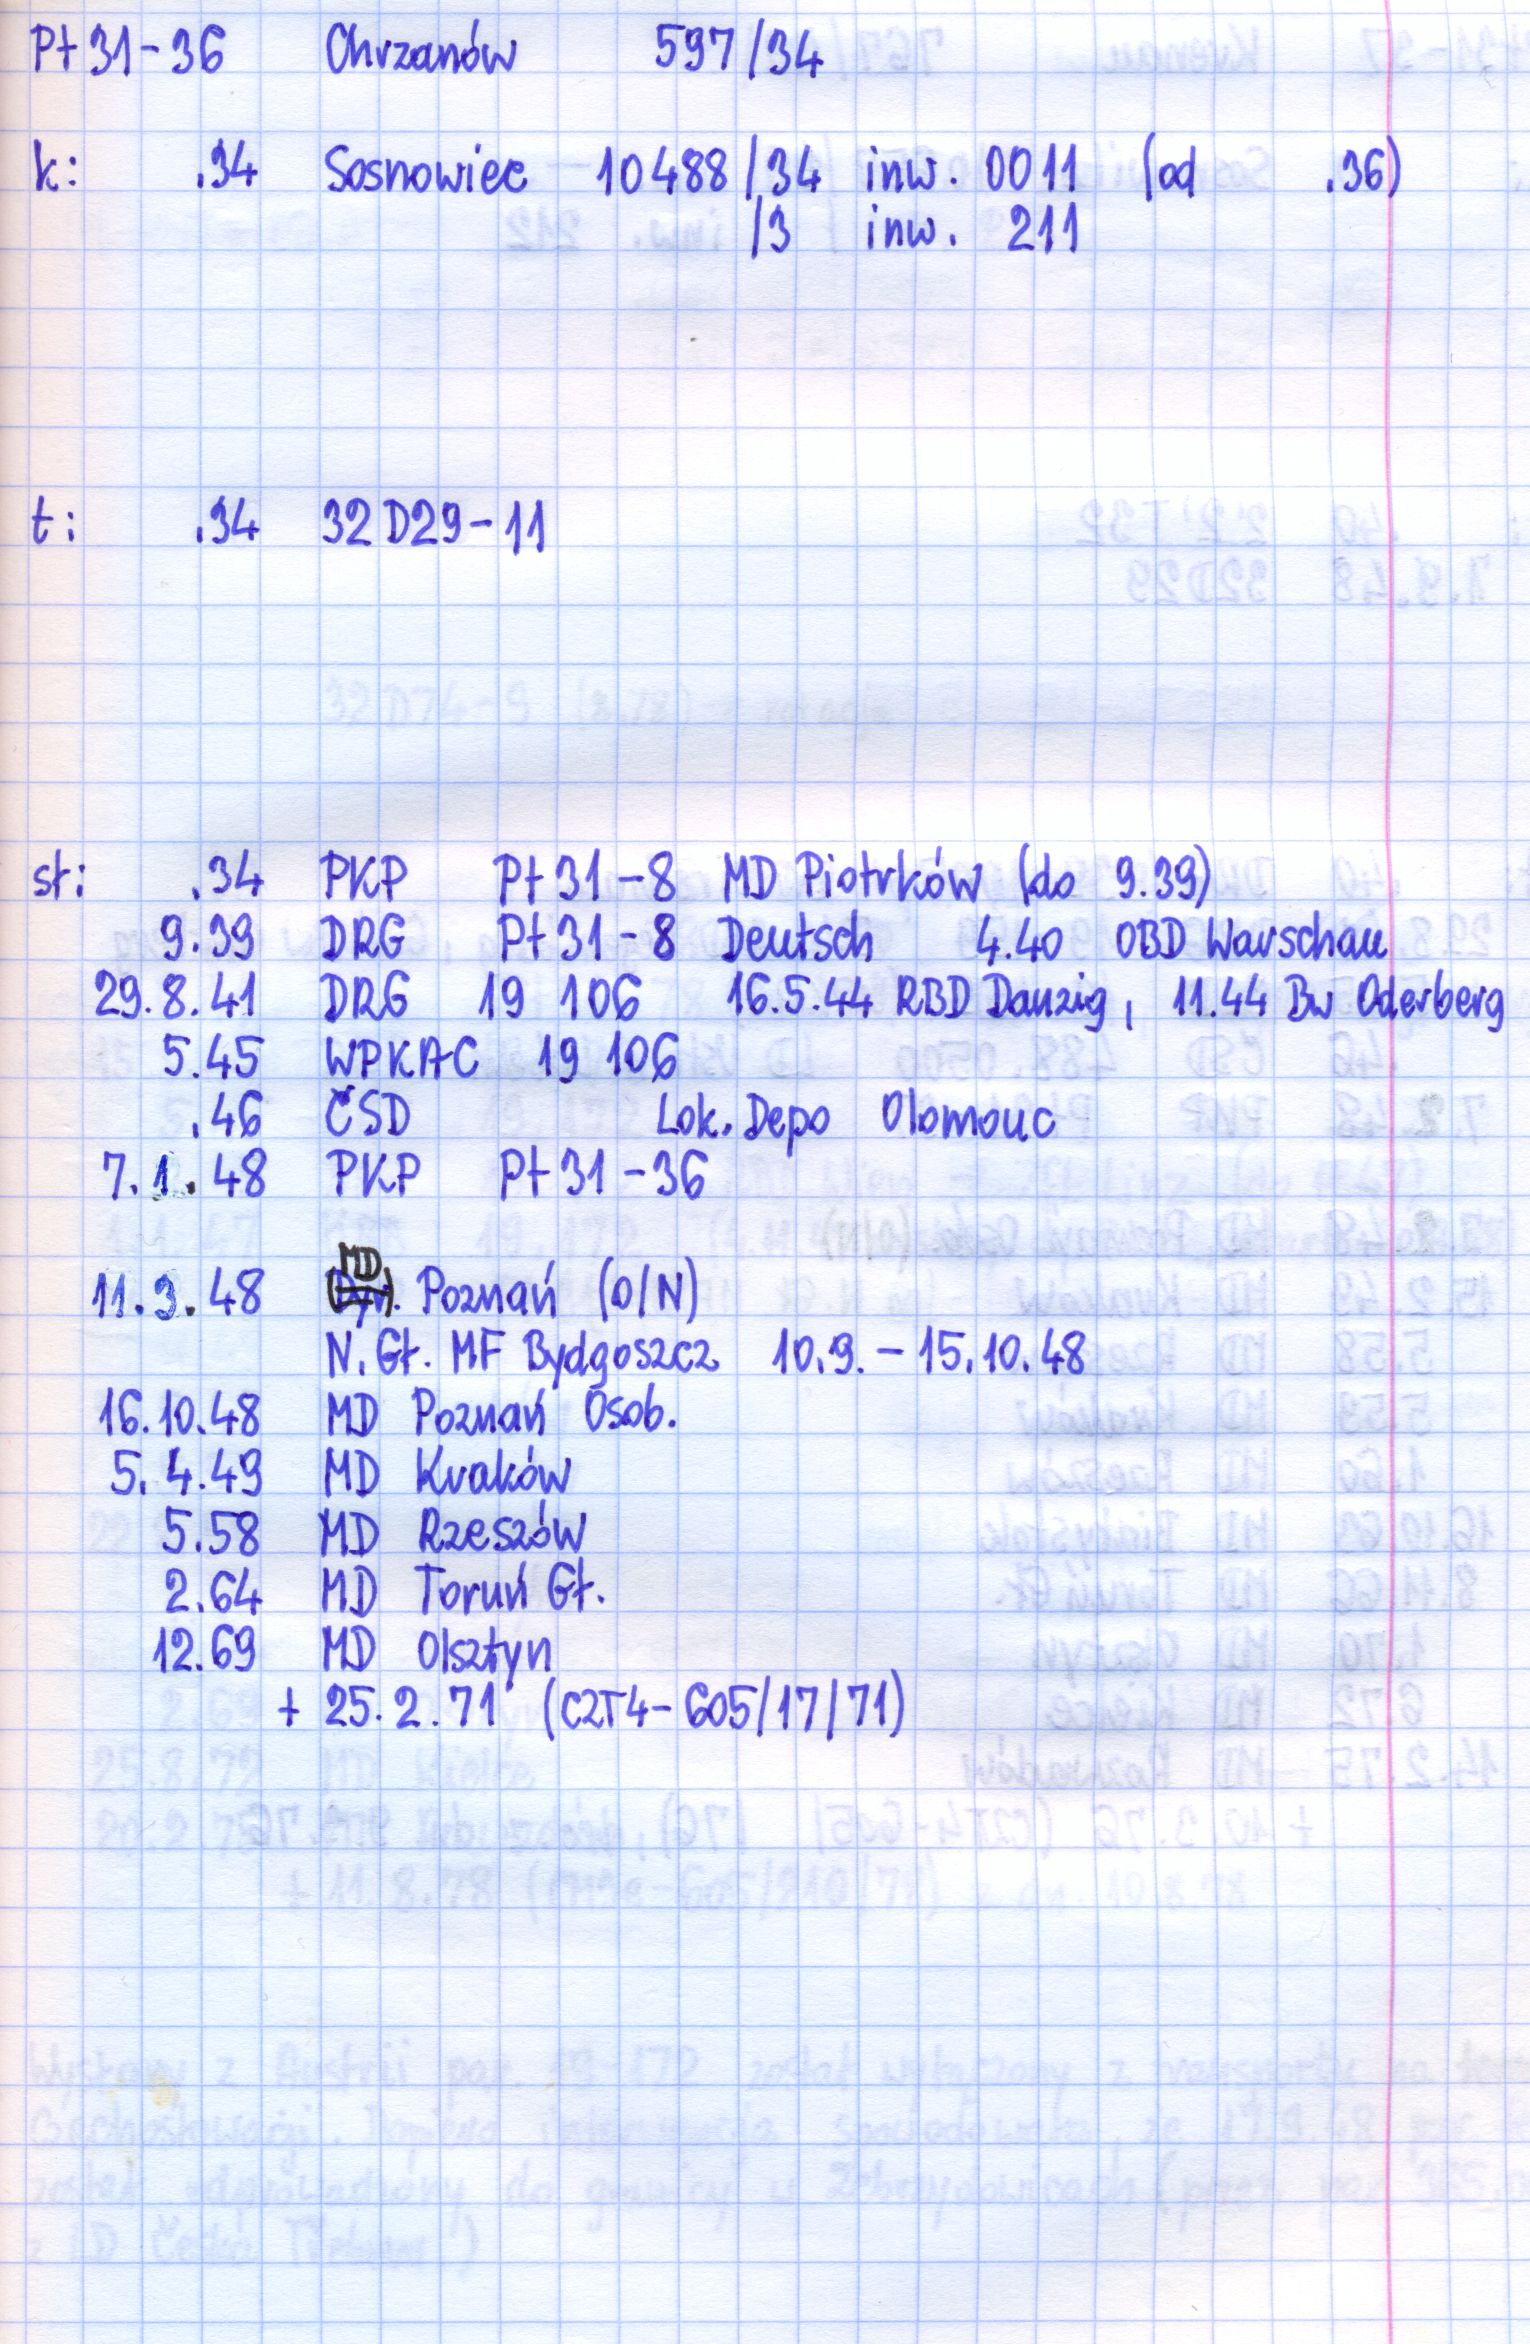 Pt 31-36 Chrzanów 597/34
k: .34 Sosnowiec 10488/34 inw. 0011 (od .36)
/3 inw. 211
t: .34 32D29-11
st: .34 PKP Pt 31-8 MD Piotrków (do 9.39)
9.39 DRG Pt 31-8 Deutsch 4.40 OBD Warschau
29.8.41 DRG 19 106 16.5.44 RBD Danzig, 11.44 Bw Oderberg
5.45 WPKAC 19 106
.46 ČSD Lok. Depo Olomouc
7.1.48 PKP Pt 31-36
11.3.48 MD Poznań (O/N)
N. Gł. MF Bydgoszcz 10.9. - 15.10.48
16.10.48 MD Poznań Osob.
5.4.49 MD Kraków
5.58 MD Rzeszów
2.64 MD Toruń Gł.
12.69 MD Olsztyn
+ 25.2.71 (C2T4-605/17/71)